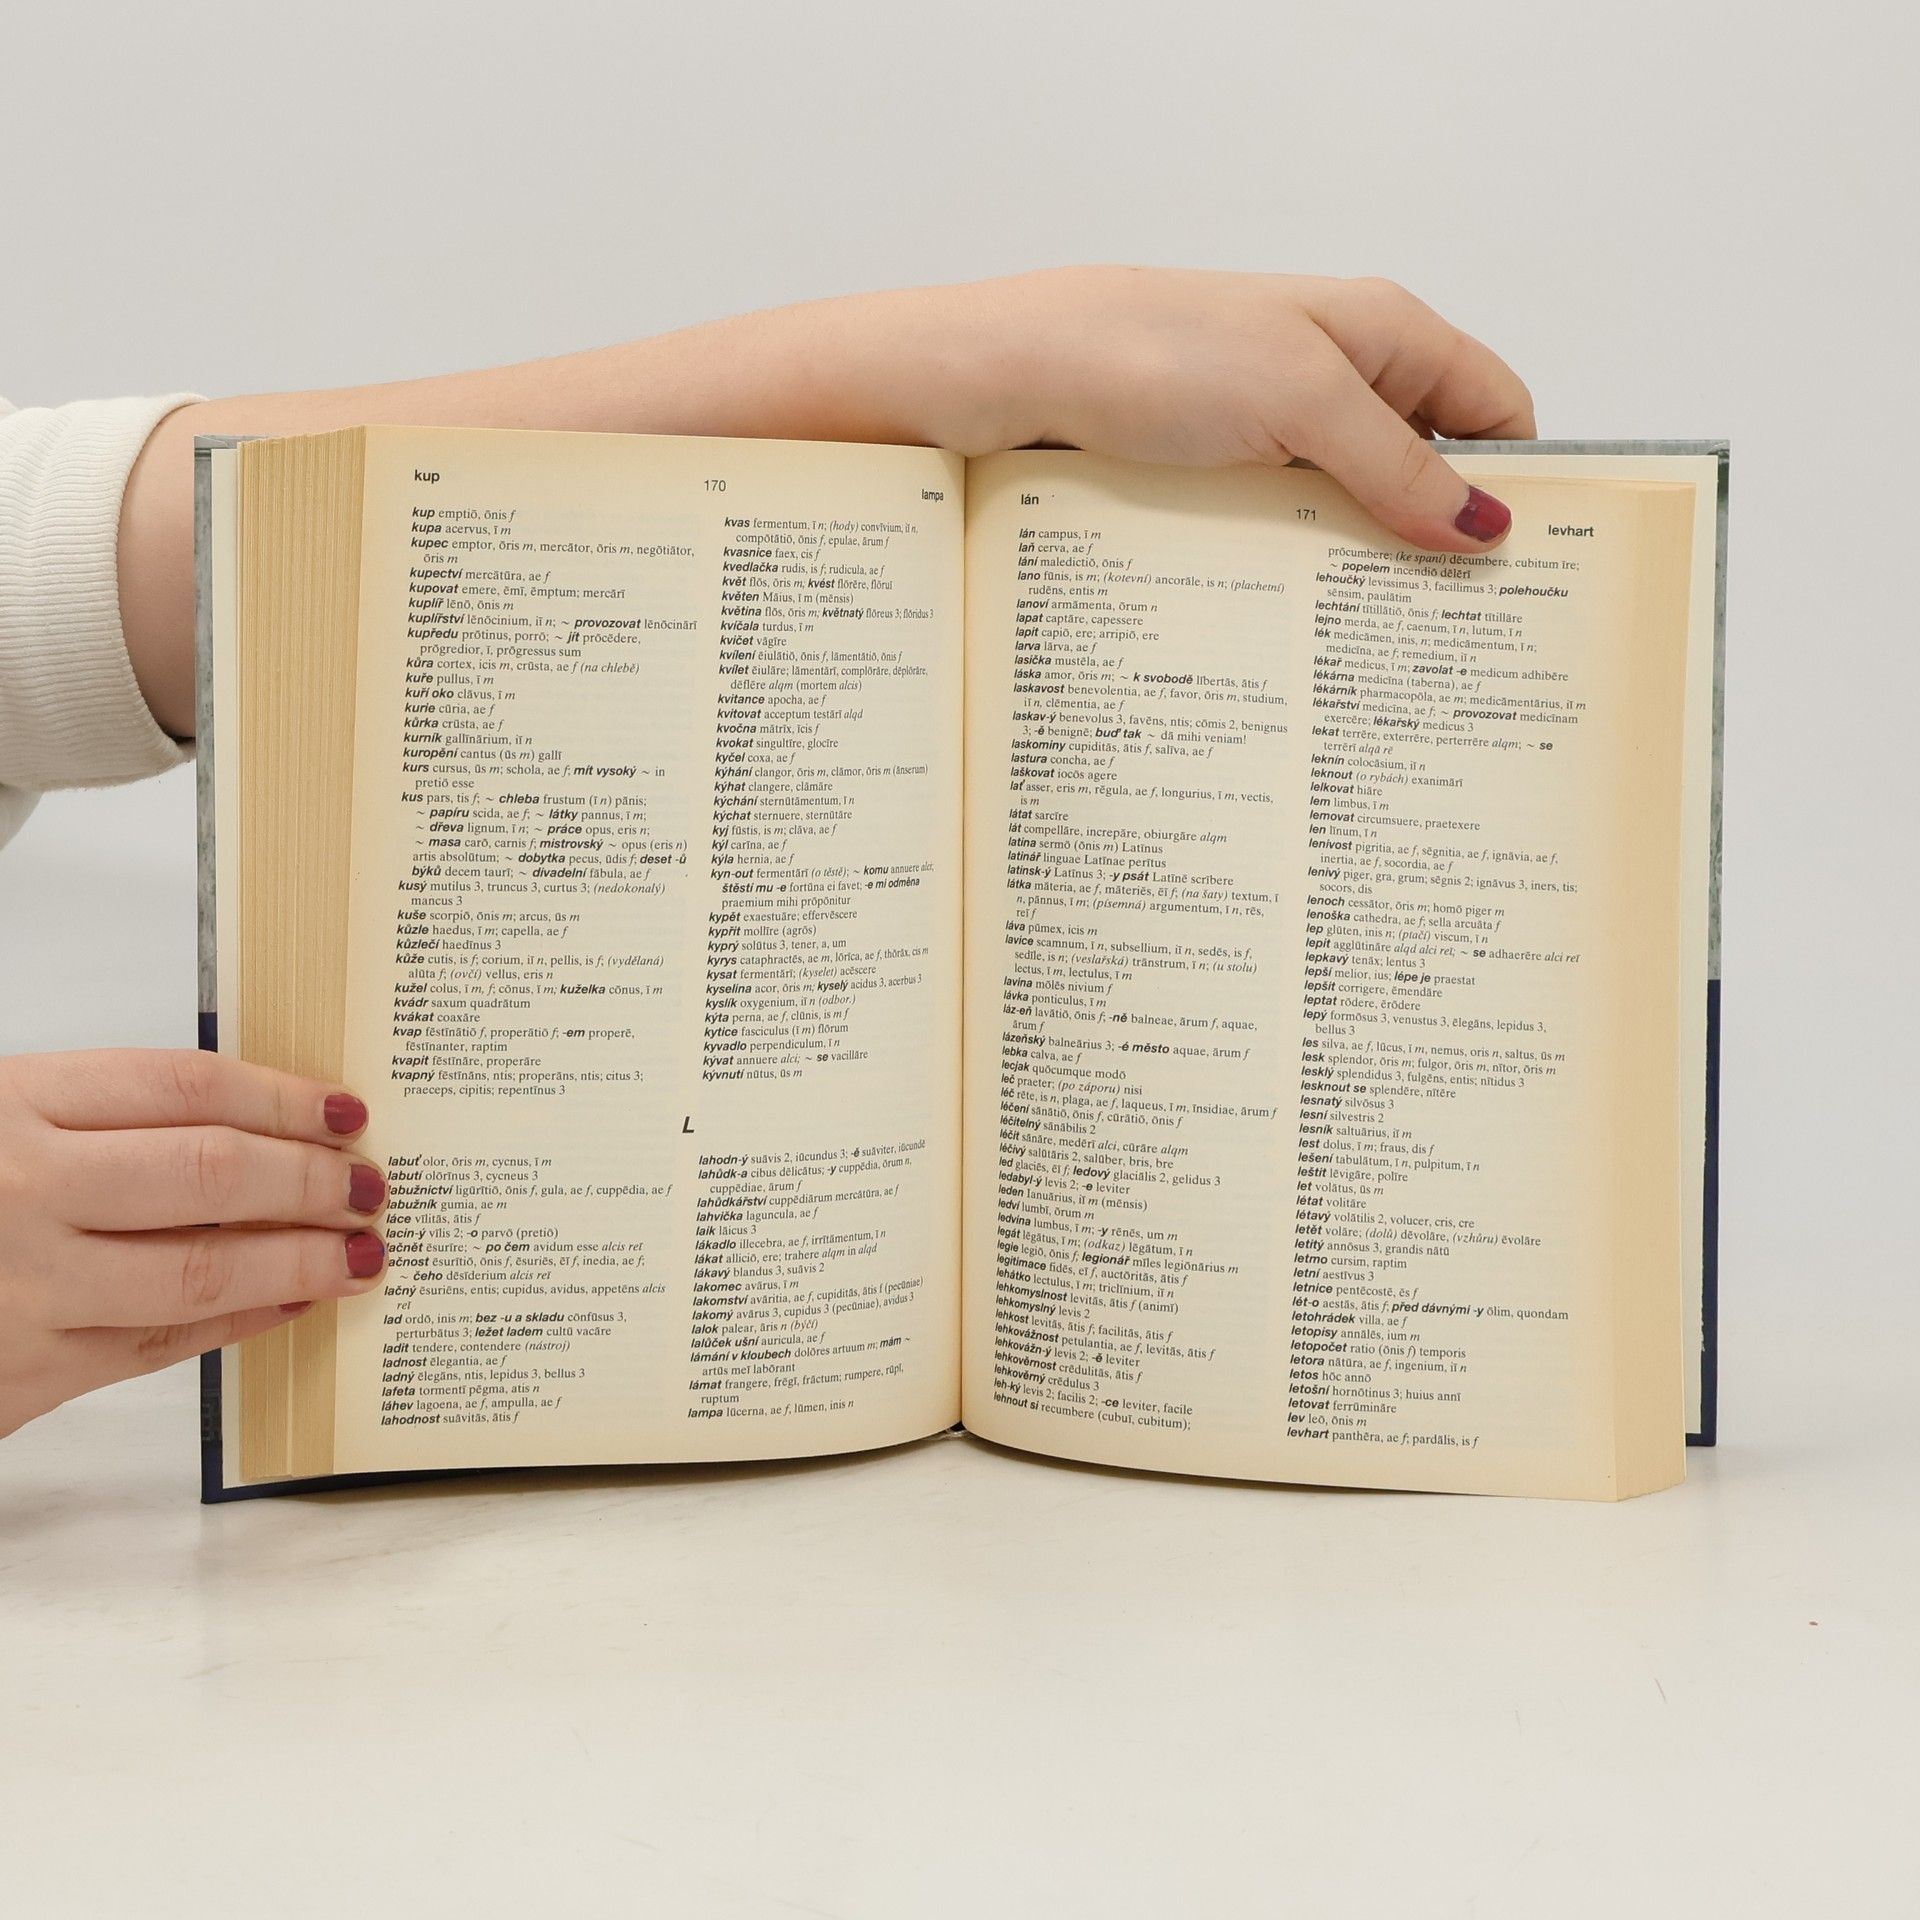 kup
170
lampa
kup emptiō, ōnis f
kupa acervus, ī m
kupec emptor, ōris m, mercātor, ōris m, negōtiātor,
ōris m
kupectví mercātūra, ae f
kupovat emere, ēmī, ēmptum; mercārī
kuplíř lēnō, ōnis m
kuplířství lēnōcinium, iī n; ~ provozovat lēnōcinārī
kupředu prōtinus, porrō; ~ jít prōcēdere,
prōgredior, ī, prōgressus sum
kůra cortex, icis m, crūsta, ae f (na chlebě)
kuře pullus, ī m
kuří oko clāvus, ī m
kurie cūria, ae f
kůrka crūsta, ae f
kurník gallīnārium, iī n
kuropění cantus (ūs m) gallī
kurs cursus, ūs m; schola, ae f; mít vysoký ~ in
pretiō esse
kus pars, tis f; ~ chleba frustum (ī n) pānis;
~ papíru scida, ae f; ~ látky pannus, ī m;
~ dřeva lignum, ī n; ~ práce opus, eris n;
~ masa carō, carnis f; mistrovský ~ opus (eris n)
artis absolūtum; ~ dobytka pecus, ūdis f; deset -ů
býků decem taurī; ~ divadelní fābula, ae f
kusý mutilus 3, truncus 3, curtus 3; (nedokonalý)
mancus 3
kuše scorpiō, ōnis m; arcus, ūs m
kůzle haedus, ī m; capella, ae f
kůzlečí haedīnus 3
kůže cutis, is f; corium, iī n, pellis, is f; (vydělaná)
alūta f; (ovčí) vellus, eris n
kužel colus, ī m, f; cōnus, ī m; kuželka cōnus, ī m
kvádr saxum quadrātum
kvákat coaxāre
kvap fēstīnātiō f, properātiō f; -em properē,
fēstīnanter, raptim
kvapit fēstīnāre, properāre
kvapný fēstīnāns, ntis; properāns, ntis; citus 3;
praeceps, cipitis; repentīnus 3
kvas fermentum, ī n; (hody) convīvium, iī n,
compōtātiō, ōnis f, epulae, ārum f
kvasnice faex, cis f
kvedlačka rudis, is f; rudicula, ae f
květ flōs, ōris m; kvést flōrēre, flōruī
květen Māius, ī m (mēnsis)
květina flōs, ōris m; květnatý flōreus 3; flōridus 3
kvíčala turdus, ī m
kvičet vāgīre
kvílení ēiulātiō, ōnis f, lāmentātiō, ōnis f
kvílet ēiulāre; lāmentārī, complōrāre, dēplōrāre,
dēflēre alqm (mortem alcis)
kvitance apocha, ae f
kvitovat acceptum testārī alqd
kvočna mātrīx, īcis f
kvokat singultīre, glocīre
kyčel coxa, ae f
kýhání clangor, ōris m, clāmor, ōris m (ānserum)
kýhat clangere, clāmāre
kýchání sternūtāmentum, ī n
kýchat sternuere, sternūtāre
kyj fūstis, is m; clāva, ae f
kýl carīna, ae f
kýla hernia, ae f
kyn-out fermentārī (o těstě); ~ komu annuere alci;
štěstí mu -e fortūna ei favet; -e mi odměna
praemium mihi prōpōnitur
kypět exaestuāre; effervēscere
kypřit mollīre (agrōs)
kyprý solūtus 3, tener, a, um
kyrys cataphractēs, ae m, lōrīca, ae f, thōrāx, cis m
kysat fermentārī; (kyselet) acēscere
kyselina acor, ōris m; kyselý acidus 3, acerbus 3
kyslík oxygenium, iī n (odbor.)
kýta perna, ae f, clūnis, is m f
kytice fasciculus (ī m) flōrum
kyvadlo perpendiculum, ī n
kývat annuere alci; ~ se vacillāre
kývnutí nūtus, ūs m
L
labuť olor, ōris m, cycnus, ī m
labutí olōrīnus 3, cycneus 3
labužnictví ligūrītiō, ōnis f, gula, ae f, cuppēdia, ae f
labužník gumia, ae m
láce vīlitās, ātis f
lacin-ý vīlis 2; -o parvō (pretiō)
lačnět ēsurīre; ~ po čem avidum esse alcis reī
lačnost ēsurītiō, ōnis f, ēsuriēs, ēī f, inedia, ae f;
~ čeho dēsīderium alcis reī
lačný ēsuriēns, entis; cupidus, avidus, appetēns alcis
reī
lad ordō, inis m; bez -u a skladu cōnfūsus 3,
perturbātus 3; ležet ladem cultū vacāre
ladit tendere, contendere (nástroj)
ladnost ēlegantia, ae f
ladný ēlegāns, ntis, lepidus 3, bellus 3
lafeta tormentī pēgma, atis n
láhev lagoena, ae f, ampulla, ae f
lahodnost suāvitās, ātis f
lahodn-ý suāvis 2, iūcundus 3; -ě suāviter, iūcundē
lahůdk-a cibus dēlicātus; -y cuppēdia, ōrum n,
cuppēdiae, ārum f
lahůdkářství cuppēdiārum mercātūra, ae f
lahvička laguncula, ae f
laik lāicus 3
lákadlo illecebra, ae f, irrītāmentum, ī n
lákat alliciō, ere; trahere alqm in alqd
lákavý blandus 3, suāvis 2
lakomec avārus, ī m
lakomství avāritia, ae f, cupiditās, ātis f (pecūniae)
lakomý avārus 3, cupidus 3 (pecūniae), avidus 3
lalok palear, āris n (býčí)
lalůček ušní auricula, ae f
lámání v kloubech dolōres artuum m; mám ~
artūs meī labōrant
lámat frangere, frēgī, frāctum; rumpere, rūpī,
ruptum
lampa lūcerna, ae f, lūmen, inis n
lán
171
levhart
lán campus, ī m
laň cerva, ae f
lání maledictiō, ōnis f
lano fūnis, is m; (kotevní) ancorāle, is n; (plachetní)
rudēns, entis m
lanoví armāmenta, ōrum n
lapat captāre, capessere
lapit capiō, ere; arripiō, ere
larva lārva, ae f
lasička mustēla, ae f
láska amor, ōris m; ~ k svobodě lībertās, ātis f
laskavost benevolentia, ae f, favor, ōris m, studium,
iī n, clēmentia, ae f
laskav-ý benevolus 3, favēns, ntis; cōmis 2, benignus
3; -ě benignē; buď tak ~ dā mihi veniam!
laskominy cupiditās, ātis f, salīva, ae f
lastura concha, ae f
laškovat iocōs agere
lať asser, eris m, rēgula, ae f, longurius, ī m, vectis,
is m
látat sarcīre
lát compellāre, increpāre, obiurgāre alqm
latina sermō (ōnis m) Latīnus
latinář linguae Latīnae perītus
latinsk-ý Latīnus 3; -y psát Latīnē scrībere
látka māteria, ae f, māteriēs, ēī f; (na šaty) textum, ī
n, pānnus, ī m; (písemná) argumentum, ī n, rēs,
reī f
láva pūmex, icis m
lavice scamnum, ī n, subsellium, iī n, sedēs, is f,
sedīle, is n; (veslařská) trānstrum, ī n; (u stolu)
lectus, ī m, lectulus, ī m
lavina mōlēs nivium f
lávka ponticulus, ī m
láz-eň lavātiō, ōnis f; -ně balneae, ārum f, aquae,
ārum f
lázeňský balneārius 3; -é město aquae, ārum f
lebka calva, ae f
lecjak quōcumque modō
leč praeter; (po záporu) nisi
léč rēte, is n, plaga, ae f, laqueus, ī m, īnsidiae, ārum f
léčení sānātiō, ōnis f, cūrātiō, ōnis f
léčitelný sānābilis 2
léčit sānāre, medērī alci, cūrāre alqm
léčivý salūtāris 2, salūber, bris, bre
led glaciēs, ēī f; ledový glaciālis 2, gelidus 3
ledabyl-ý levis 2; -e leviter
leden Ianuārius, iī m (mēnsis)
ledví lumbī, ōrum m
ledvina lumbus, ī m; -y rēnēs, um m
legát lēgātus, ī m; (odkaz) lēgātum, ī n
legie legiō, ōnis f; legionář mīles legiōnārius m
legitimace fidēs, eī f, auctōritās, ātis f
lehátko lectulus, ī m; triclīnium, iī n
lehkomyslnost levitās, ātis f (animī)
lehkomyslný levis 2
lehkost levitās, ātis f; facilitās, ātis f
lehkovážnost petulantia, ae f, levitās, ātis f
lehkovážn-ý levis 2; -ě leviter
lehkověrnost crēdulitās, ātis f
lehkověrný crēdulus 3
leh-ký levis 2; facilis 2; -ce leviter, facile
lehnout si recumbere (cubuī, cubitum);
prōcumbere; (ke spaní) dēcumbere, cubitum īre;
~ popelem incendiō dēlērī
lehoučký levissimus 3, facillimus 3; polehoučku
sēnsim, paulātim
lechtání tītillātiō, ōnis f; lechtat tītillāre
lejno merda, ae f, caenum, ī n, lutum, ī n
lék medicāmen, inis, n; medicāmentum, ī n;
medicīna, ae f, remedium, iī n
lékař medicus, ī m; zavolat -e medicum adhibēre
lékárna medicīna (taberna), ae f
lékárník pharmacopōla, ae m; medicāmentārius, iī m
lékařství medicīna, ae f; ~ provozovat medicīnam
exercēre; lékařský medicus 3
lekat terrēre, exterrēre, perterrēre alqm; ~ se
terrērī alqā rē
leknín colocāsium, iī n
leknout (o rybách) exanimārī
lelkovat hiāre
lem limbus, ī m
lemovat circumsuere, praetexere
len līnum, ī n
lenivost pigritia, ae f, sēgnitia, ae f, ignāvia, ae f,
inertia, ae f, socordia, ae f
lenivý piger, gra, grum; sēgnis 2; ignāvus 3, iners, tis;
socors, dis
lenoch cessātor, ōris m; homō piger m
lenoška cathedra, ae f; sella arcuāta f
lep glūten, inis n; (ptačí) viscum, ī n
lepit agglūtināre alqd alci reī; ~ se adhaerēre alci reī
lepkavý tenāx; lentus 3
lepší melior, ius; lépe je praestat
lepšit corrigere, ēmendāre
leptat rōdere, ērōdere
lepý formōsus 3, venustus 3, ēlegāns, lepidus 3,
bellus 3
les silva, ae f, lūcus, ī m, nemus, oris n, saltus, ūs m
lesk splendor, ōris m; fulgor, ōris m, nītor, ōris m
lesklý splendidus 3, fulgēns, entis; nītidus 3
lesknout se splendēre, nītēre
lesnatý silvōsus 3
lesní silvestris 2
lesník saltuārius, iī m
lest dolus, ī m; fraus, dis f
lešení tabulātum, ī n, pulpitum, ī n
leštit lēvigāre, polīre
let volātus, ūs m
létat volitāre
létavý volātilis 2, volucer, cris, cre
letět volāre; (dolů) dēvolāre, (vzhůru) ēvolāre
letitý annōsus 3, grandis nātū
letmo cursim, raptim
letní aestīvus 3
letnice pentēcostē, ēs f
lét-o aestās, ātis f; před dávnými -y ōlim, quondam
letohrádek villa, ae f
letopisy annālēs, ium m
letopočet ratio (ōnis f) temporis
letora nātūra, ae f, ingenium, iī n
letos hōc annō
letošní hornōtinus 3; huius annī
letovat ferrūmināre
lev leō, ōnis m
levhart panthēra, ae f; pardālis, is f